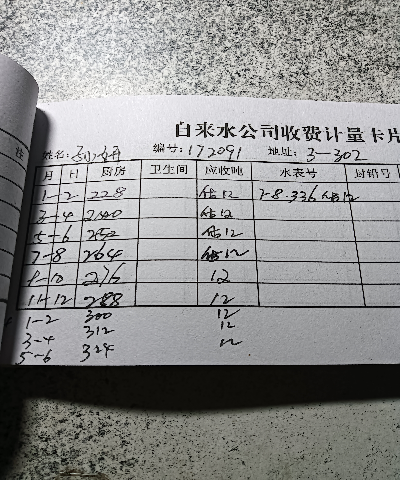 自来水公司收费计量卡片
姓名: 编号:172091 地址:3-302
月 日 厨房 卫生间 应收吨 水表号 封铅号
1-2 228 估12 7-8.336估12
3-4 240 估12
5-6 252 估12
7-8 264 估12
9-10 276 12
11-12 288 12
1-2 300 12
3-4 312 12
5-6 324 12